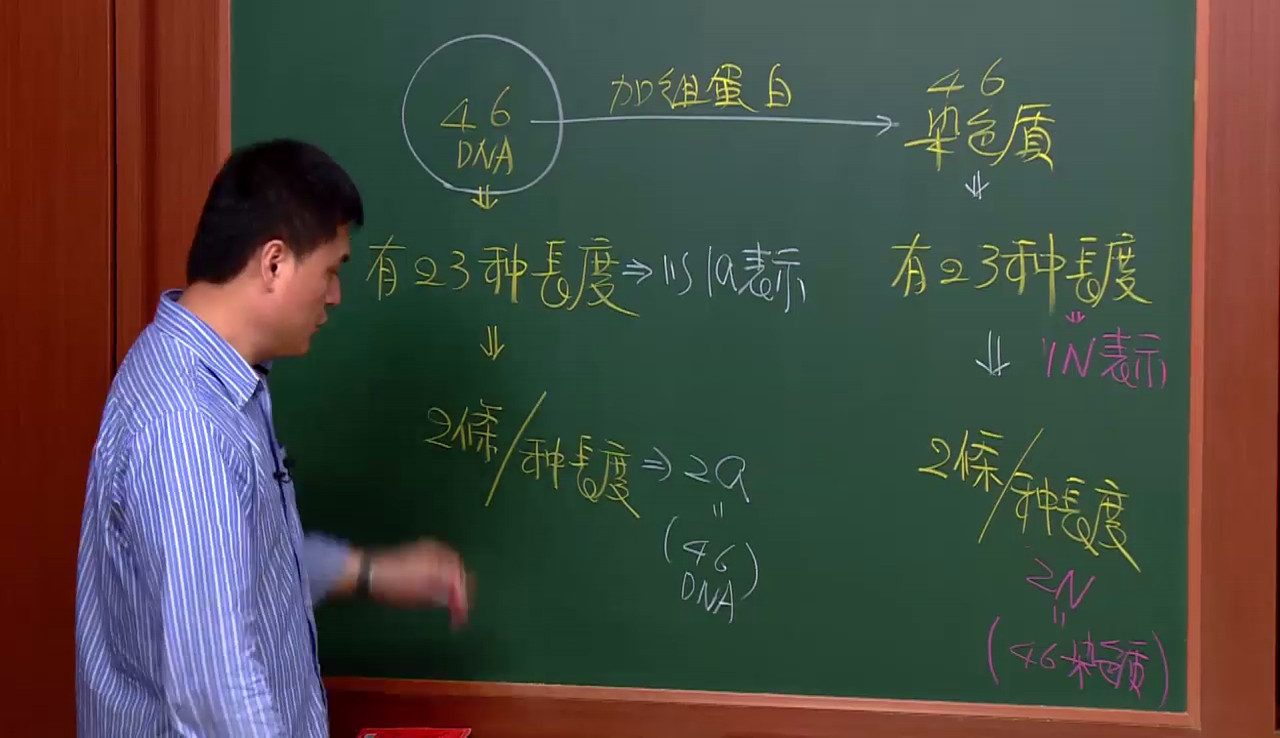 46
DNA
加組蛋白
46
染色质
有23种長度⇒以1a表示
有23种長度
1N表示
2條/种長度⇒2a
=
(46
DNA)
2條/种長度
2N
=
(46染色质)